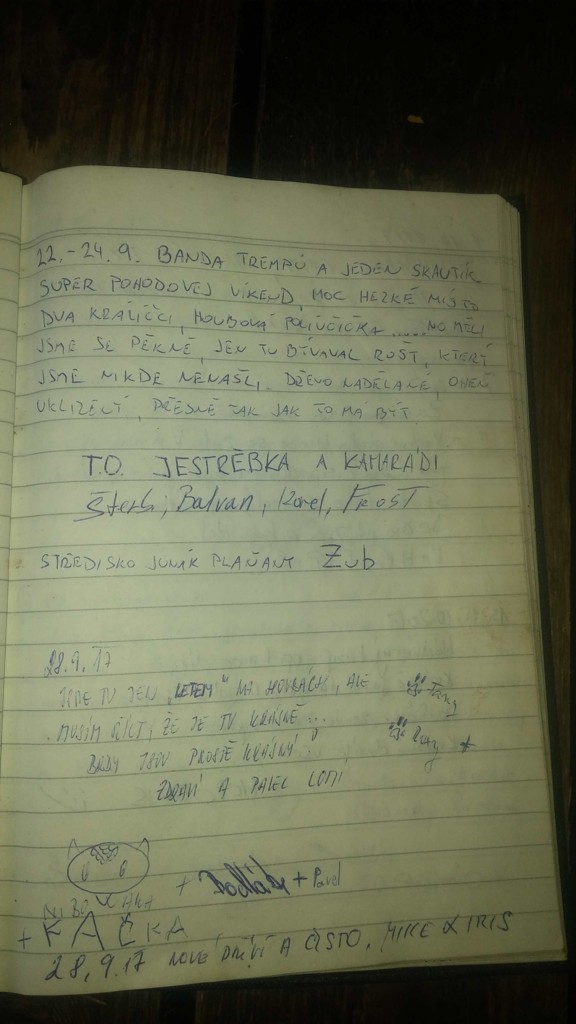 22.-24.9. BANDA TREMPŮ A JEDEN SKAUTÍK
SUPER POHODOVEJ VÍKEND, MOC HEZKÉ MÍSTO
DVA KRALÍČCI, HOUBOVÁ ..... NO MĚLI
JSME SE PĚKNĚ, JEN TU BÝVAVAL ROŠT, KTERÝ
JSME NIKDE NENAŠLI. DŘEVO NADĚLANÉ, OHEŇ
UKLIZENÝ, PŘESNĚ TAK JAK TO MÁ BÝT.
T.O. JESTŘEBKA A KAMARÁDI
Balvan, Karel, FROST
STŘEDISKO JUNÁK PLAŇANY Zub
28.9.17
JSME TU JEN „LETEM" NA HOUBÁCH, ALE
MUSÍM ŘÍCT, ŽE JE TU KRÁSNĚ...
BRDY JSOU PROSTĚ KRÁSNÝ!
ZDRAVÍ A PALEC LOMÍ
+ + Pavel
+ KAČKA
28.9.17 NOVÉ DŘÍVÍ A ČISTO. MIKE & IRIS